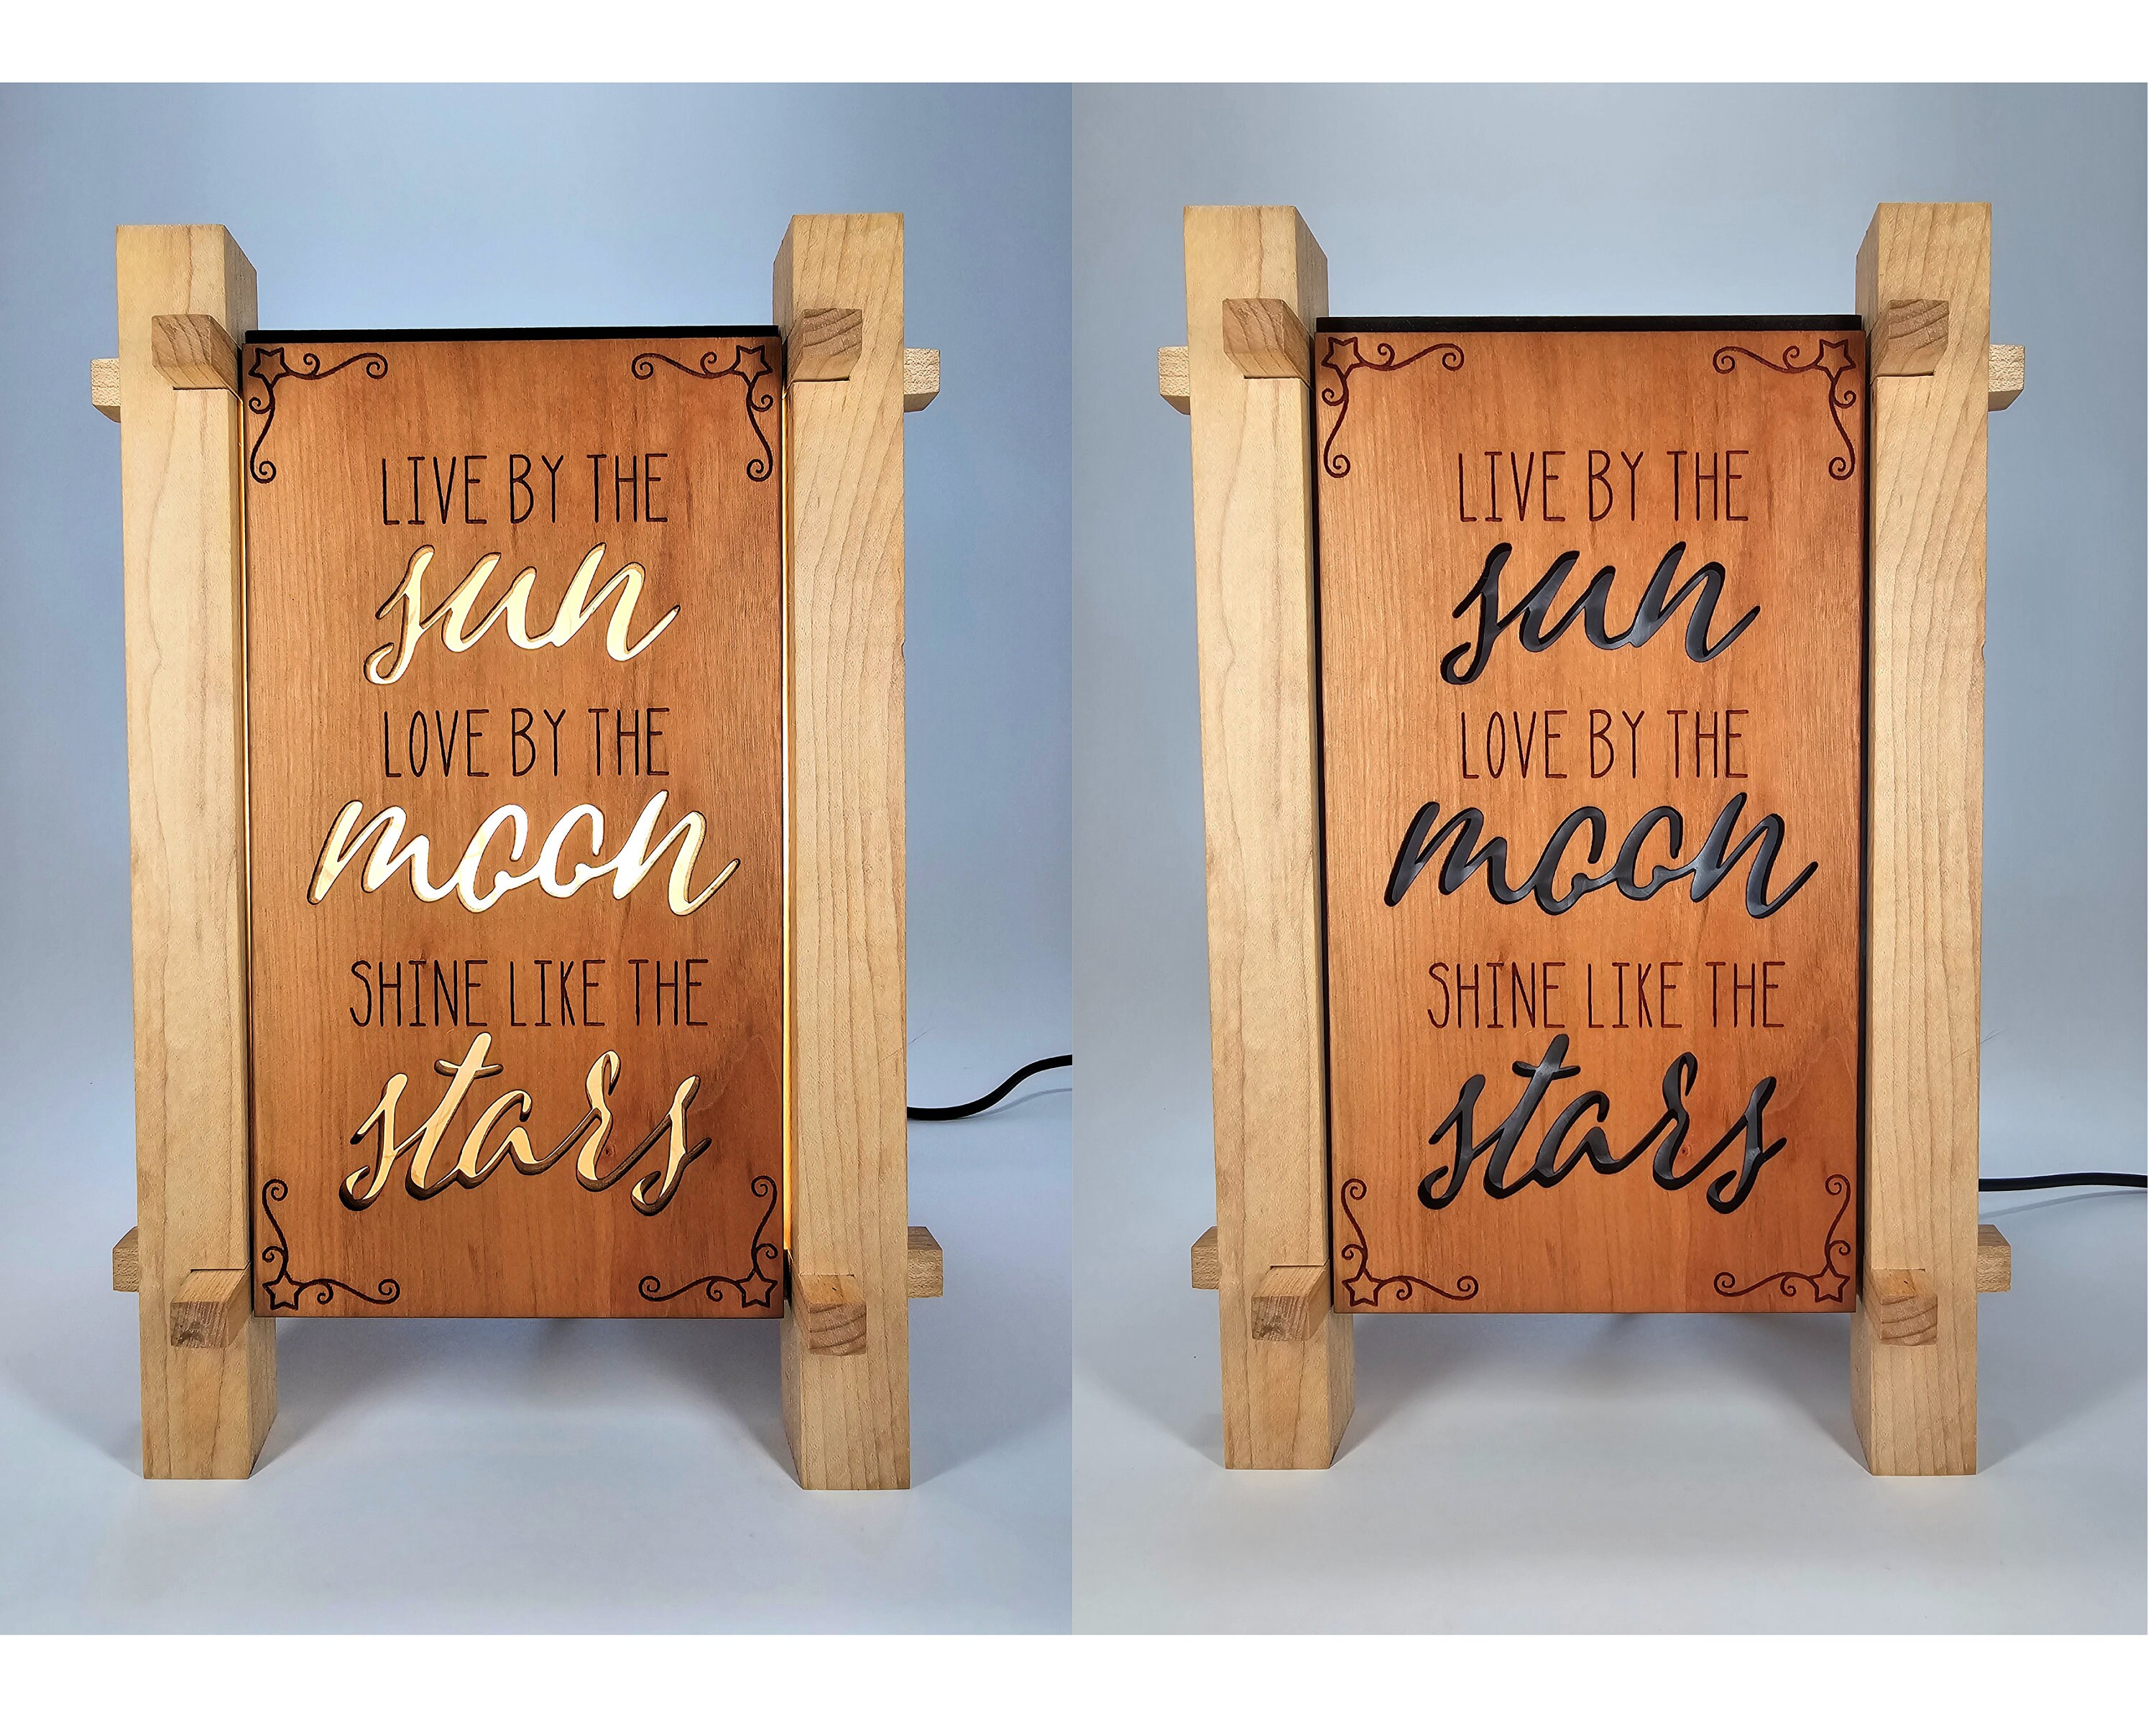 LIVE BY THE
sun
LOVE BY THE
moon
SHINE LIKE THE
stars
LIVE BY THE
sun
LOVE BY THE
moon
SHINE LIKE THE
stars